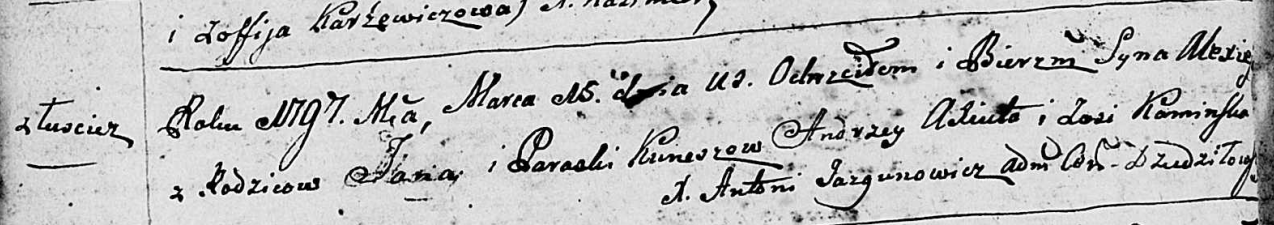 i Zoffija Karżewiczowa X. Kazimierz
z Łuscicz
Roku 1797. Mca, Marca 15. dnia us. Ochrzciłem i Bierzm Syna Alexieg
z Rodzicow Jana, i Paraski Kuneszow Andrzey Achuta i Zosi Kaminska
X. Antoni Jazgunowicz adm Cer. Dziedziłowy